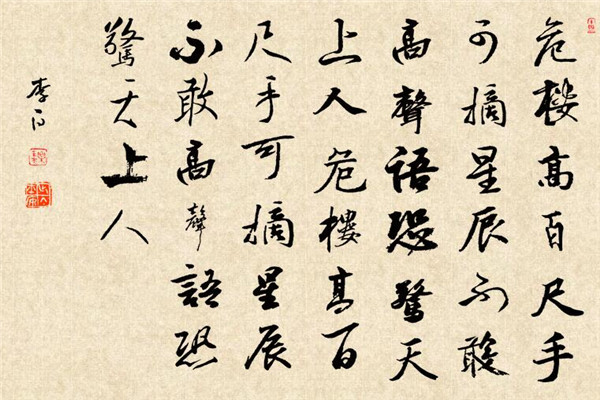 危樓高百尺手
可摘星辰不敢
高聲語恐驚天
上人危樓高百
尺手可摘星辰
不敢高聲語恐
驚天上人
李白